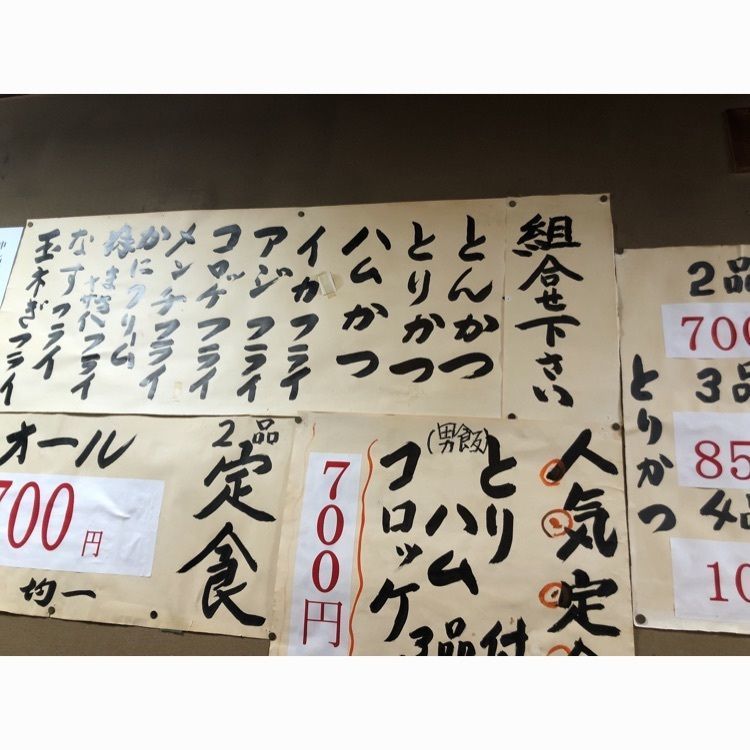 組合せ下さい
とんかつ
とりかつ
ハムかつ
イカフライ
アジフライ
コロッケフライ
メンチフライ
かにクリーム
なすフライ
玉木ぎフライ
2品
700
3品
85
4品
10
とりかつ
人気定食
とり
ハム
コロッケ
(男飯)
3品付
700円
2品
定食
オール
700円
均一